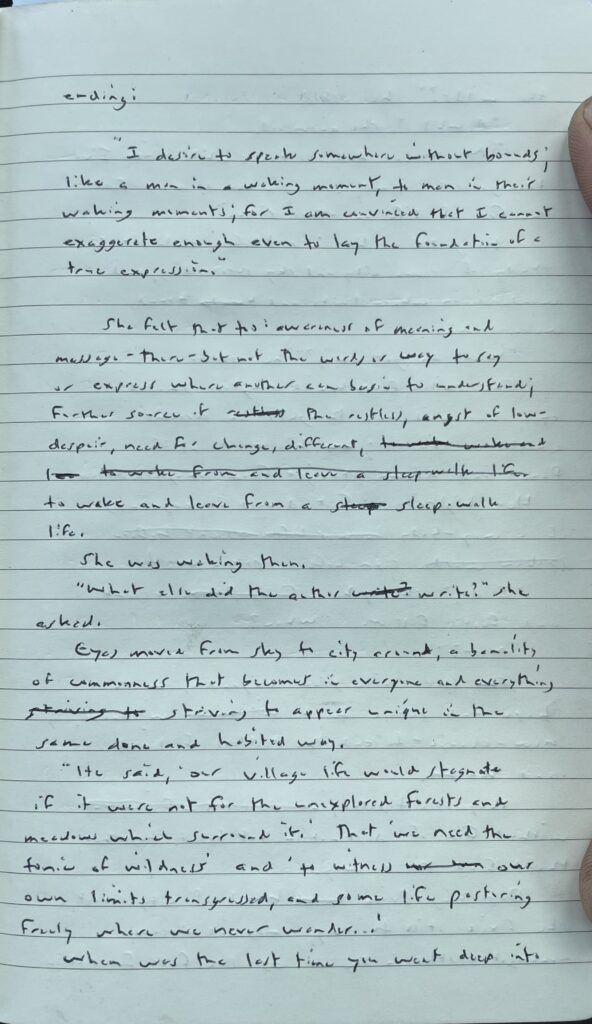 ending:
"I desire to speak somewhere without bounds;
like a man in a waking moment, to men in their
waking moments; for I am convinced that I cannot
exaggerate enough even to lay the foundation of a
true expression."
She felt that too: awareness of meaning and
message-there-but not the words or way to say
or express where another can begin to understand;
further source of restless the restless, angst of low-
despair, need for change, different, to wake wake and
to wake from and leave a sleep-walk life.
to wake and leave from a sleep sleep-walk
life.
She was waking then.
"What else did the author write? write?" she
asked.
Eyes moved from sky to city around, a banality
of commonness that becomes in everyone and everything
striving to striving to appear unique in the
same done and habited way.
"He said, 'our village life would stagnate
if it were not for the unexplored forests and
meadows which surround it.' That 'we need the
tonic of wildness' and 'to witness our
own limits transgressed, and some life pasturing
freely where we never wander...'
When was the last time you went deep into